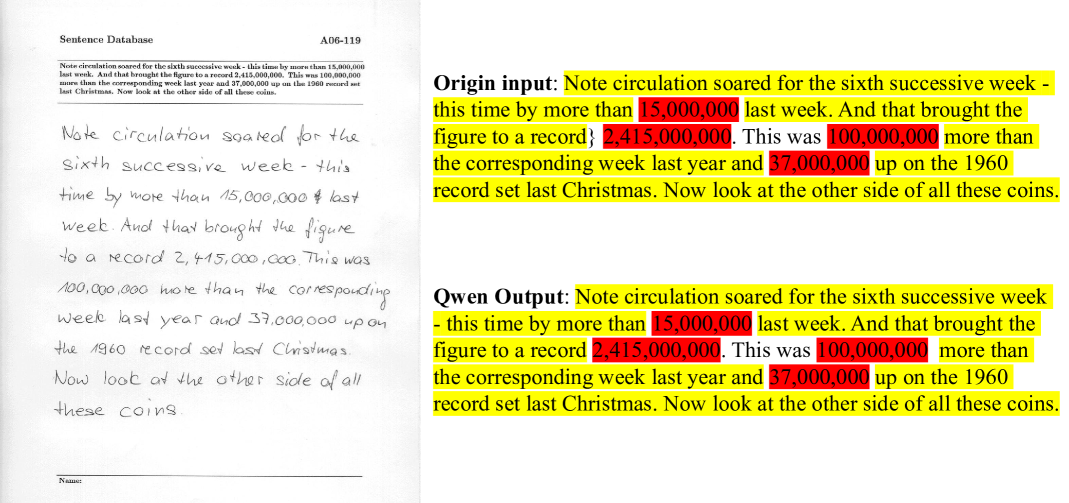 Sentence Database A06-119
Note circulation soared for the sixth successive week - this time by more than 15,000,000
last week. And that brought the figure to a record 2,415,000,000. This was 100,000,000
more than the corresponding week last year and 37,000,000 up on the 1960 record set
last Christmas. Now look at the other side of all these coins.
Note circulation soared for the
sixth successive week - this
time by more than 15,000,000 last
week. And that brought the figure
to a record 2,415,000,000. This was
100,000,000 more than the corresponding
week last year and 37,000,000 up on
the 1960 record set last Christmas.
Now look at the other side of all
these coins.
Name:
Origin input: Note circulation soared for the sixth successive week -
this time by more than 15,000,000 last week. And that brought the
figure to a record} 2,415,000,000. This was 100,000,000 more than
the corresponding week last year and 37,000,000 up on the 1960
record set last Christmas. Now look at the other side of all these coins.
Qwen Output: Note circulation soared for the sixth successive week
- this time by more than 15,000,000 last week. And that brought the
figure to a record 2,415,000,000. This was 100,000,000 more than
the corresponding week last year and 37,000,000 up on the 1960
record set last Christmas. Now look at the other side of all these coins.